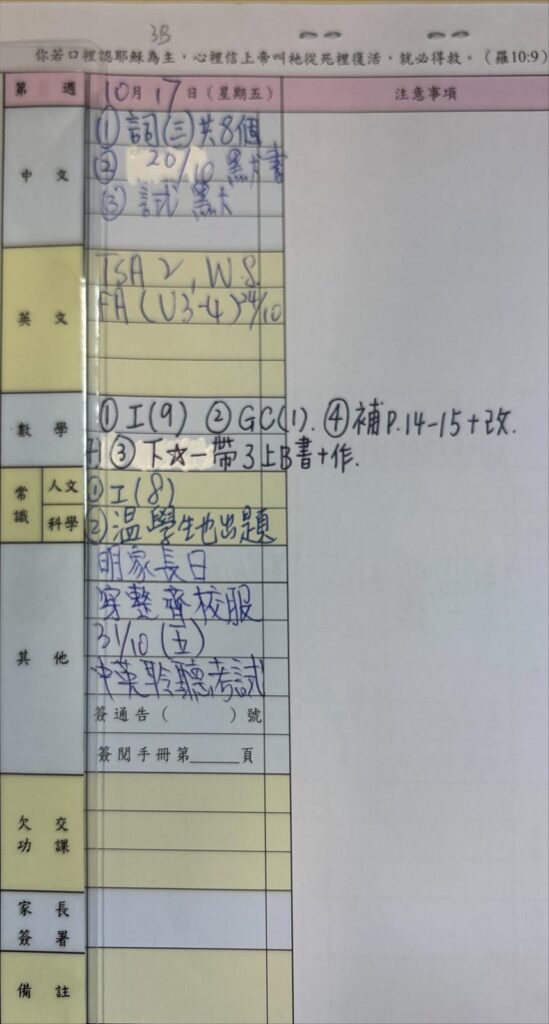 3B
你若口裡認耶穌為主，心裡信上帝叫祂從死裡復活，就必得救。（羅10:9）
第 週 10月 17日（星期五） 注意事項
中文 ① 詞(三)共8個
② 20/10 默大書
③ 試默大
英文 TSA 2, W.S.
FA (U3-4) 24/10
數學 ① 工(9) ② GC(1). ④補P.14-15+改.
③ 下☆一帶3上B書+作.
常識 人文 ① 工(8)
科學 ② 溫學生也出題
其他 明家長日
穿整齊校服
31/10 (五)
中英聆聽考試
簽通告（ ）號
簽閱手冊第_____頁
欠交功課
家長簽署
備註